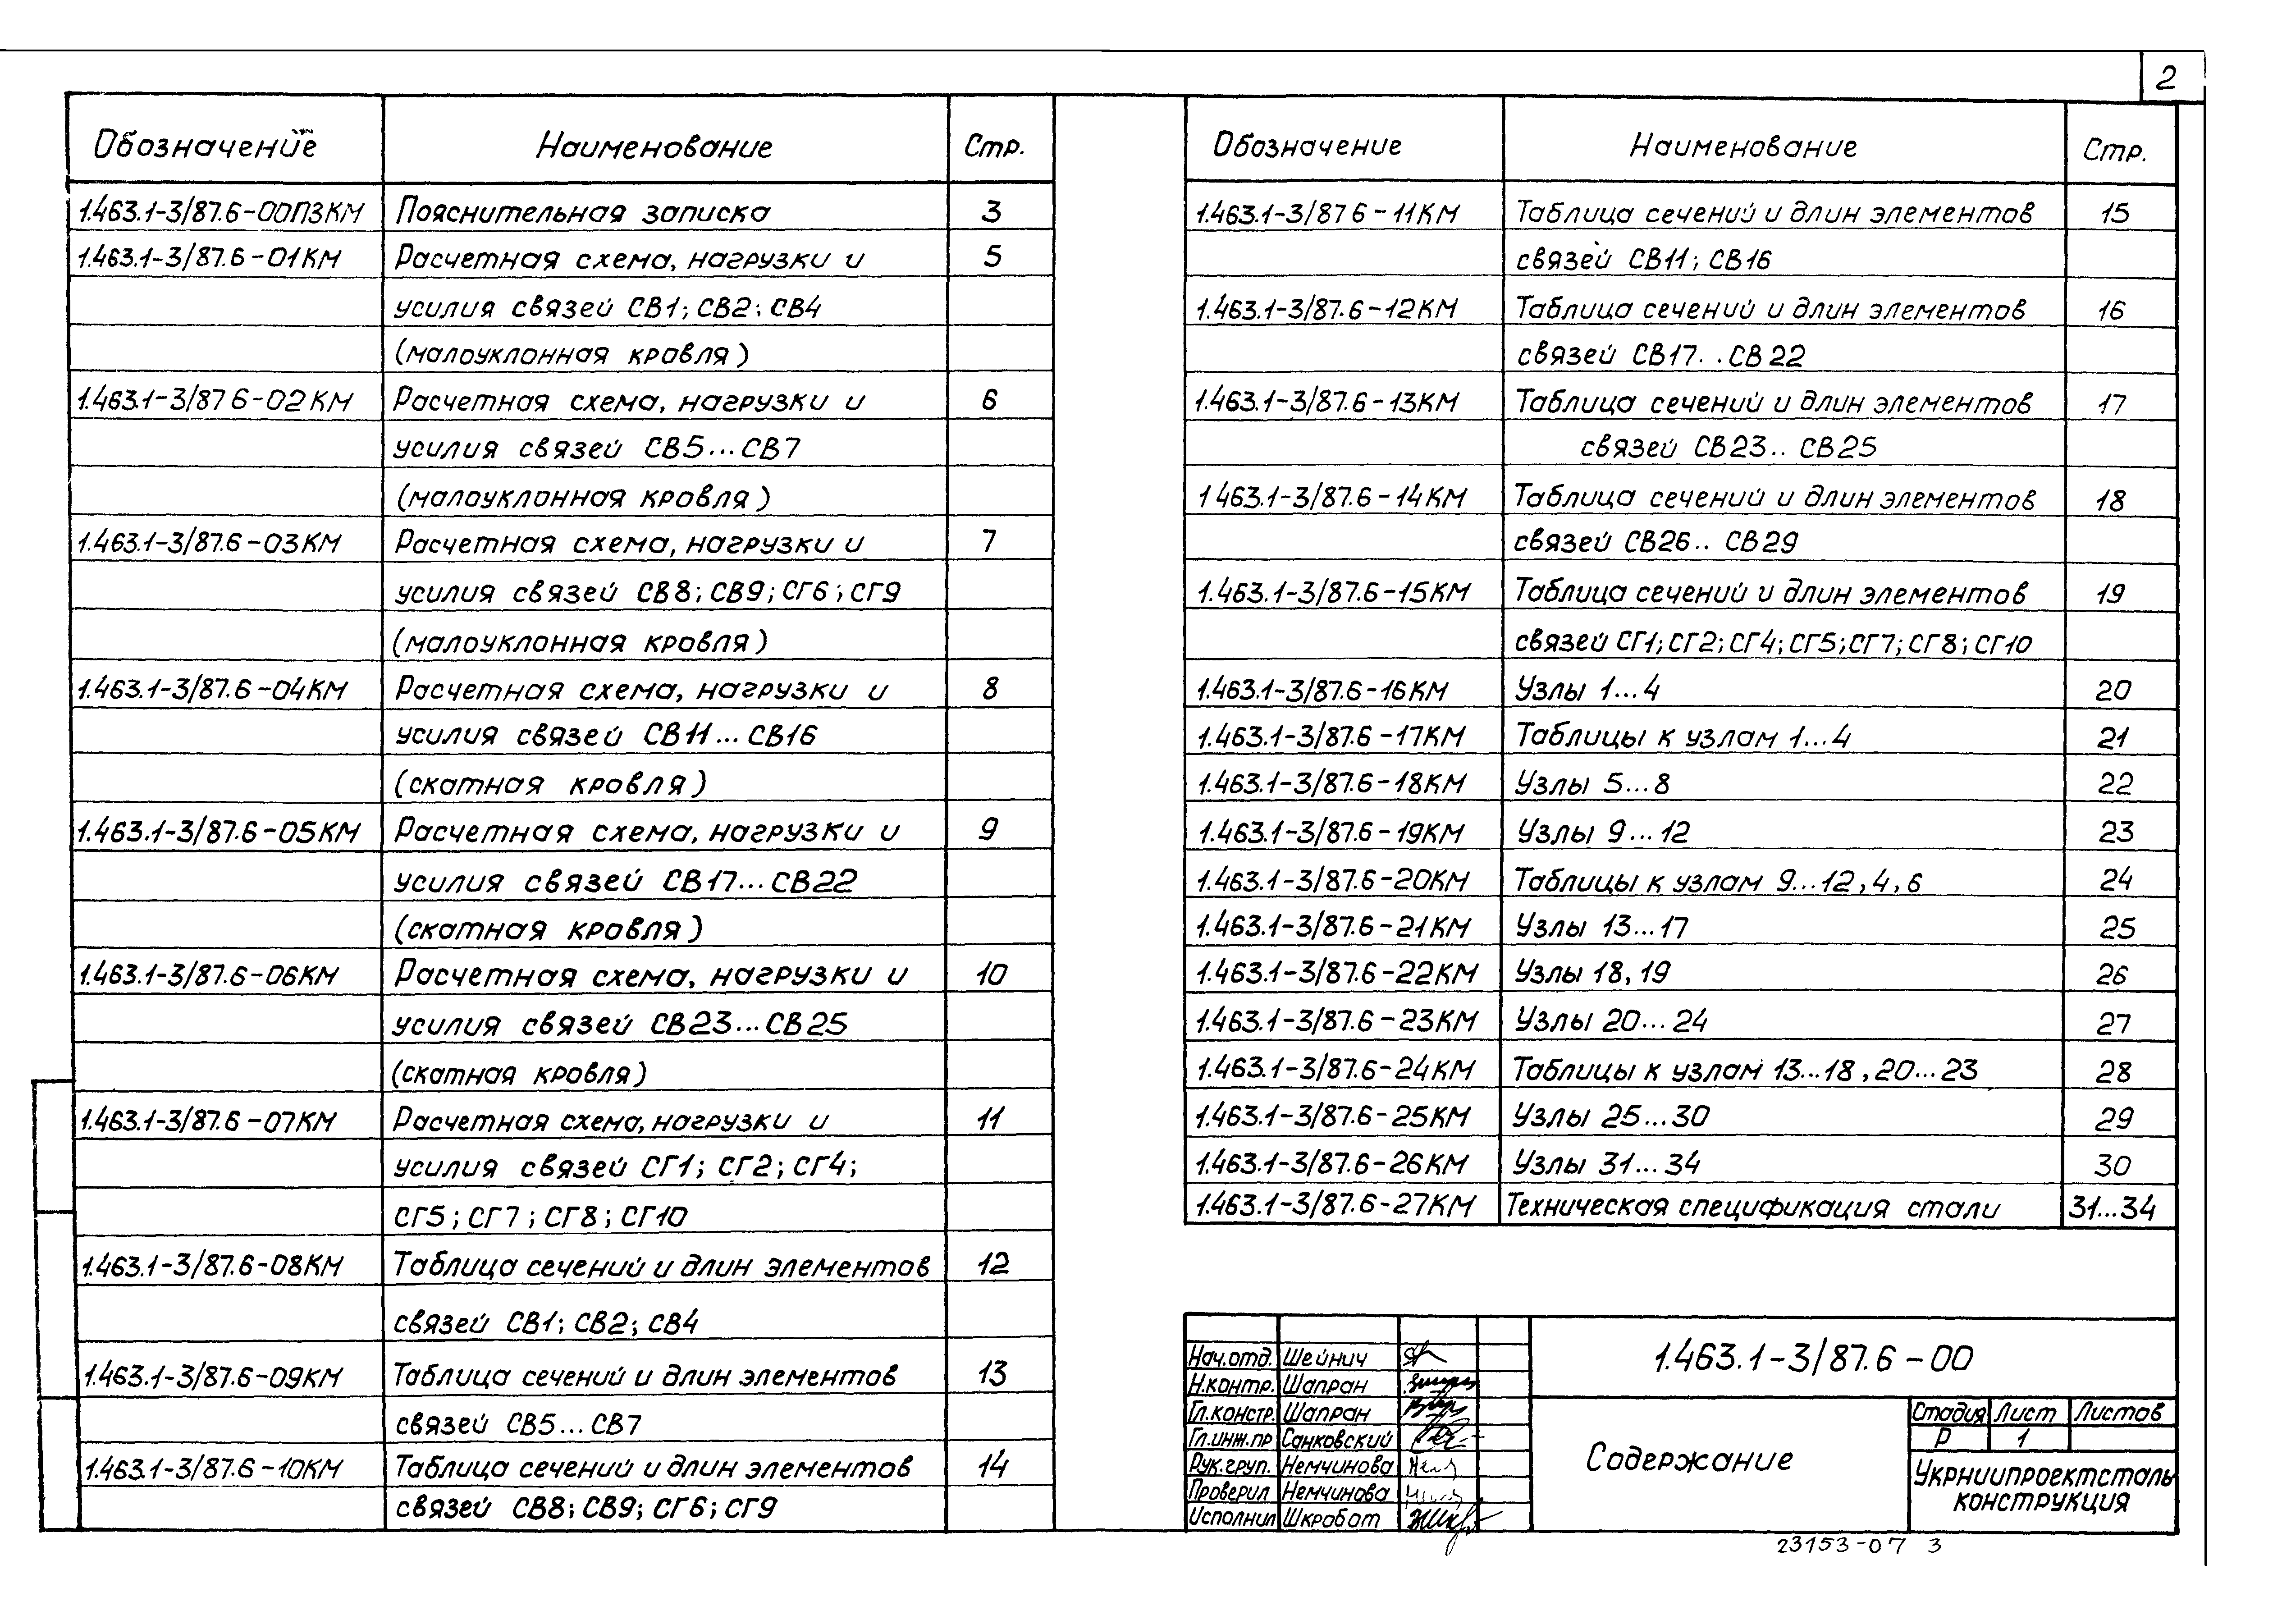 2
Обозначение Наименование Стр.
1.463.1-3/87.6-00ПЗКМ Пояснительная записка 3
1.463.1-3/87.6-01КМ Расчетная схема, нагрузки и 5
усилия связей СВ1; СВ2; СВ4
(малоуклонная кровля)
1.463.1-3/87 6-02КМ Расчетная схема, нагрузки и 6
усилия связей СВ5...СВ7
(малоуклонная кровля)
1.463.1-3/87.6-03КМ Расчетная схема, нагрузки и 7
усилия связей СВ8; СВ9; СГ6; СГ9
(малоуклонная кровля)
1.463.1-3/87.6-04КМ Расчетная схема, нагрузки и 8
усилия связей СВ11...СВ16
(скатная кровля)
1.463.1-3/87.6-05КМ Расчетная схема, нагрузки и 9
усилия связей СВ17...СВ22
(скатная кровля)
1.463.1-3/87.6-06КМ Расчетная схема, нагрузки и 10
усилия связей СВ23...СВ25
(скатная кровля)
1.463.1-3/87.6-07КМ Расчетная схема, нагрузки и 11
усилия связей СГ1; СГ2; СГ4;
СГ5; СГ7; СГ8; СГ10
1.463.1-3/87.6-08КМ Таблица сечений и длин элементов 12
связей СВ1; СВ2; СВ4
1.463.1-3/87.6-09КМ Таблица сечений и длин элементов 13
связей СВ5...СВ7
1.463.1-3/87.6-10КМ Таблица сечений и длин элементов 14
связей СВ8; СВ9; СГ6; СГ9
Обозначение Наименование Стр.
1.463.1-3/87 6-11КМ Таблица сечений и длин элементов 15
связей СВ11; СВ16
1.463.1-3/87.6-12КМ Таблица сечений и длин элементов 16
связей СВ17..СВ22
1.463.1-3/87.6-13КМ Таблица сечений и длин элементов 17
связей СВ23..СВ25
1 463.1-3/87.6-14КМ Таблица сечений и длин элементов 18
связей СВ26..СВ29
1.463.1-3/87.6-15КМ Таблица сечений и длин элементов 19
связей СГ1; СГ2; СГ4; СГ5; СГ7; СГ8; СГ10
1.463.1-3/87.6-16КМ Узлы 1...4 20
1.463.1-3/87.6-17КМ Таблицы к узлам 1...4 21
1.463.1-3/87.6-18КМ Узлы 5...8 22
1.463.1-3/87.6-19КМ Узлы 9...12 23
1.463.1-3/87.6-20КМ Таблицы к узлам 9...12, 4, 6 24
1.463.1-3/87.6-21КМ Узлы 13...17 25
1.463.1-3/87.6-22КМ Узлы 18, 19 26
1.463.1-3/87.6-23КМ Узлы 20...24 27
1.463.1-3/87.6-24КМ Таблицы к узлам 13...18, 20...23 28
1.463.1-3/87.6-25КМ Узлы 25...30 29
1.463.1-3/87.6-26КМ Узлы 31...34 30
1.463.1-3/87.6-27КМ Техническая спецификация стали 31...34
Нач.отд. Шейнич
Н.контр. Шапран
Гл.констр. Шапран
Гл.инж.пр Санковский
Рук.груп. Немчинова
Проверил Немчинова
Исполнил Шкробот
1.463.1-3/87.6-00
Содержание
Стадия Лист Листов
Р 1
Укрниипроектсталь
конструкция
23153-07 3